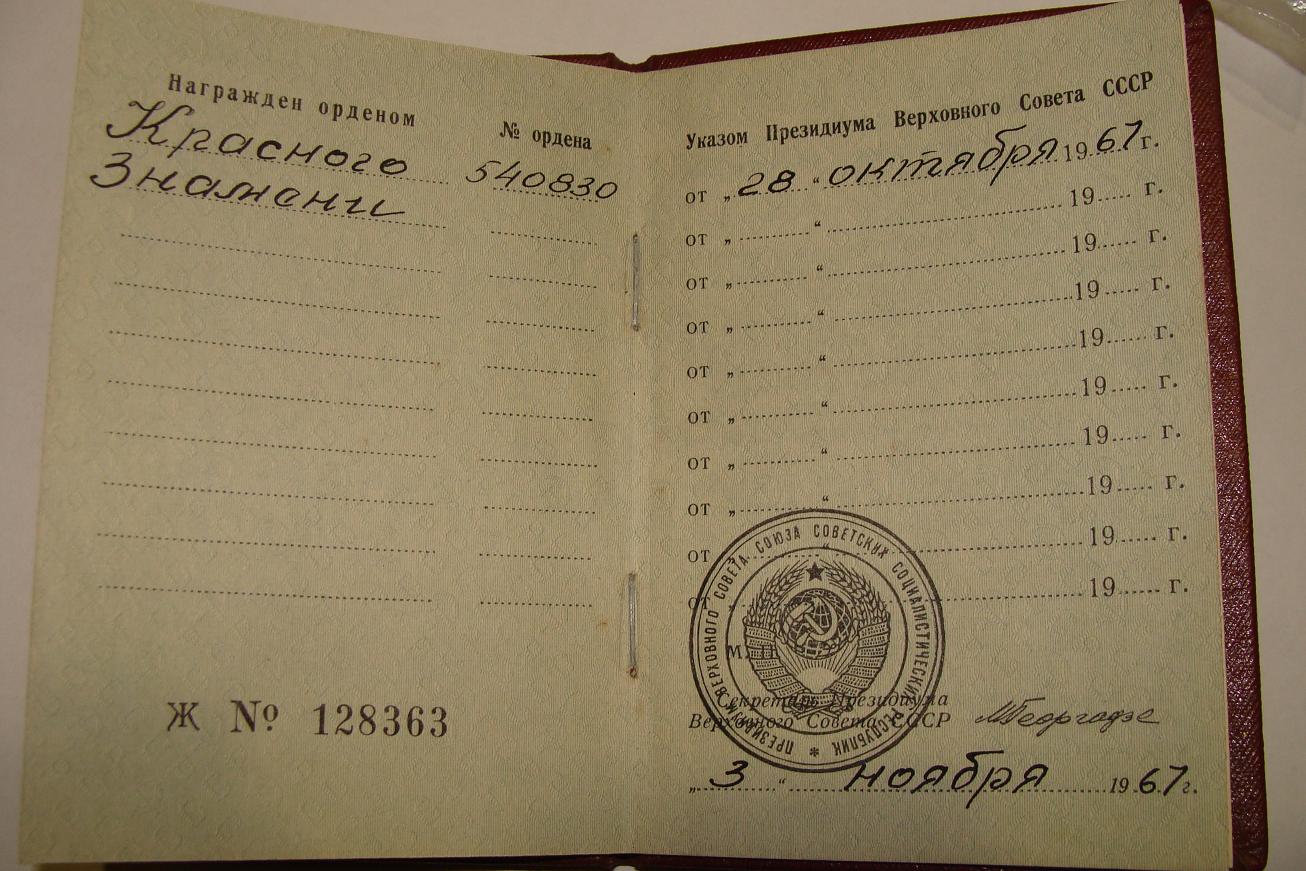 Награжден орденом
№ ордена
Красного
Знамени
540830
Ж № 128363
Указом Президиума Верховного Совета СССР
от „28“ октября 1967 г.
от „ “ 19 г.
от „ “ 19 г.
от „ “ 19 г.
от „ “ 19 г.
от „ “ 19 г.
от „ “ 19 г.
от „ “ 19 г.
от „ “ 19 г.
от „ “ 19 г.
М. П.
ПРЕЗИДИУМ ВЕРХОВНОГО СОВЕТА СОЮЗА СОВЕТСКИХ СОЦИАЛИСТИЧЕСКИХ РЕСПУБЛИК *
Секретарь Президиума
Верховного Совета СССР МГеоргадзе
„ 3 “ ноября 1967 г.